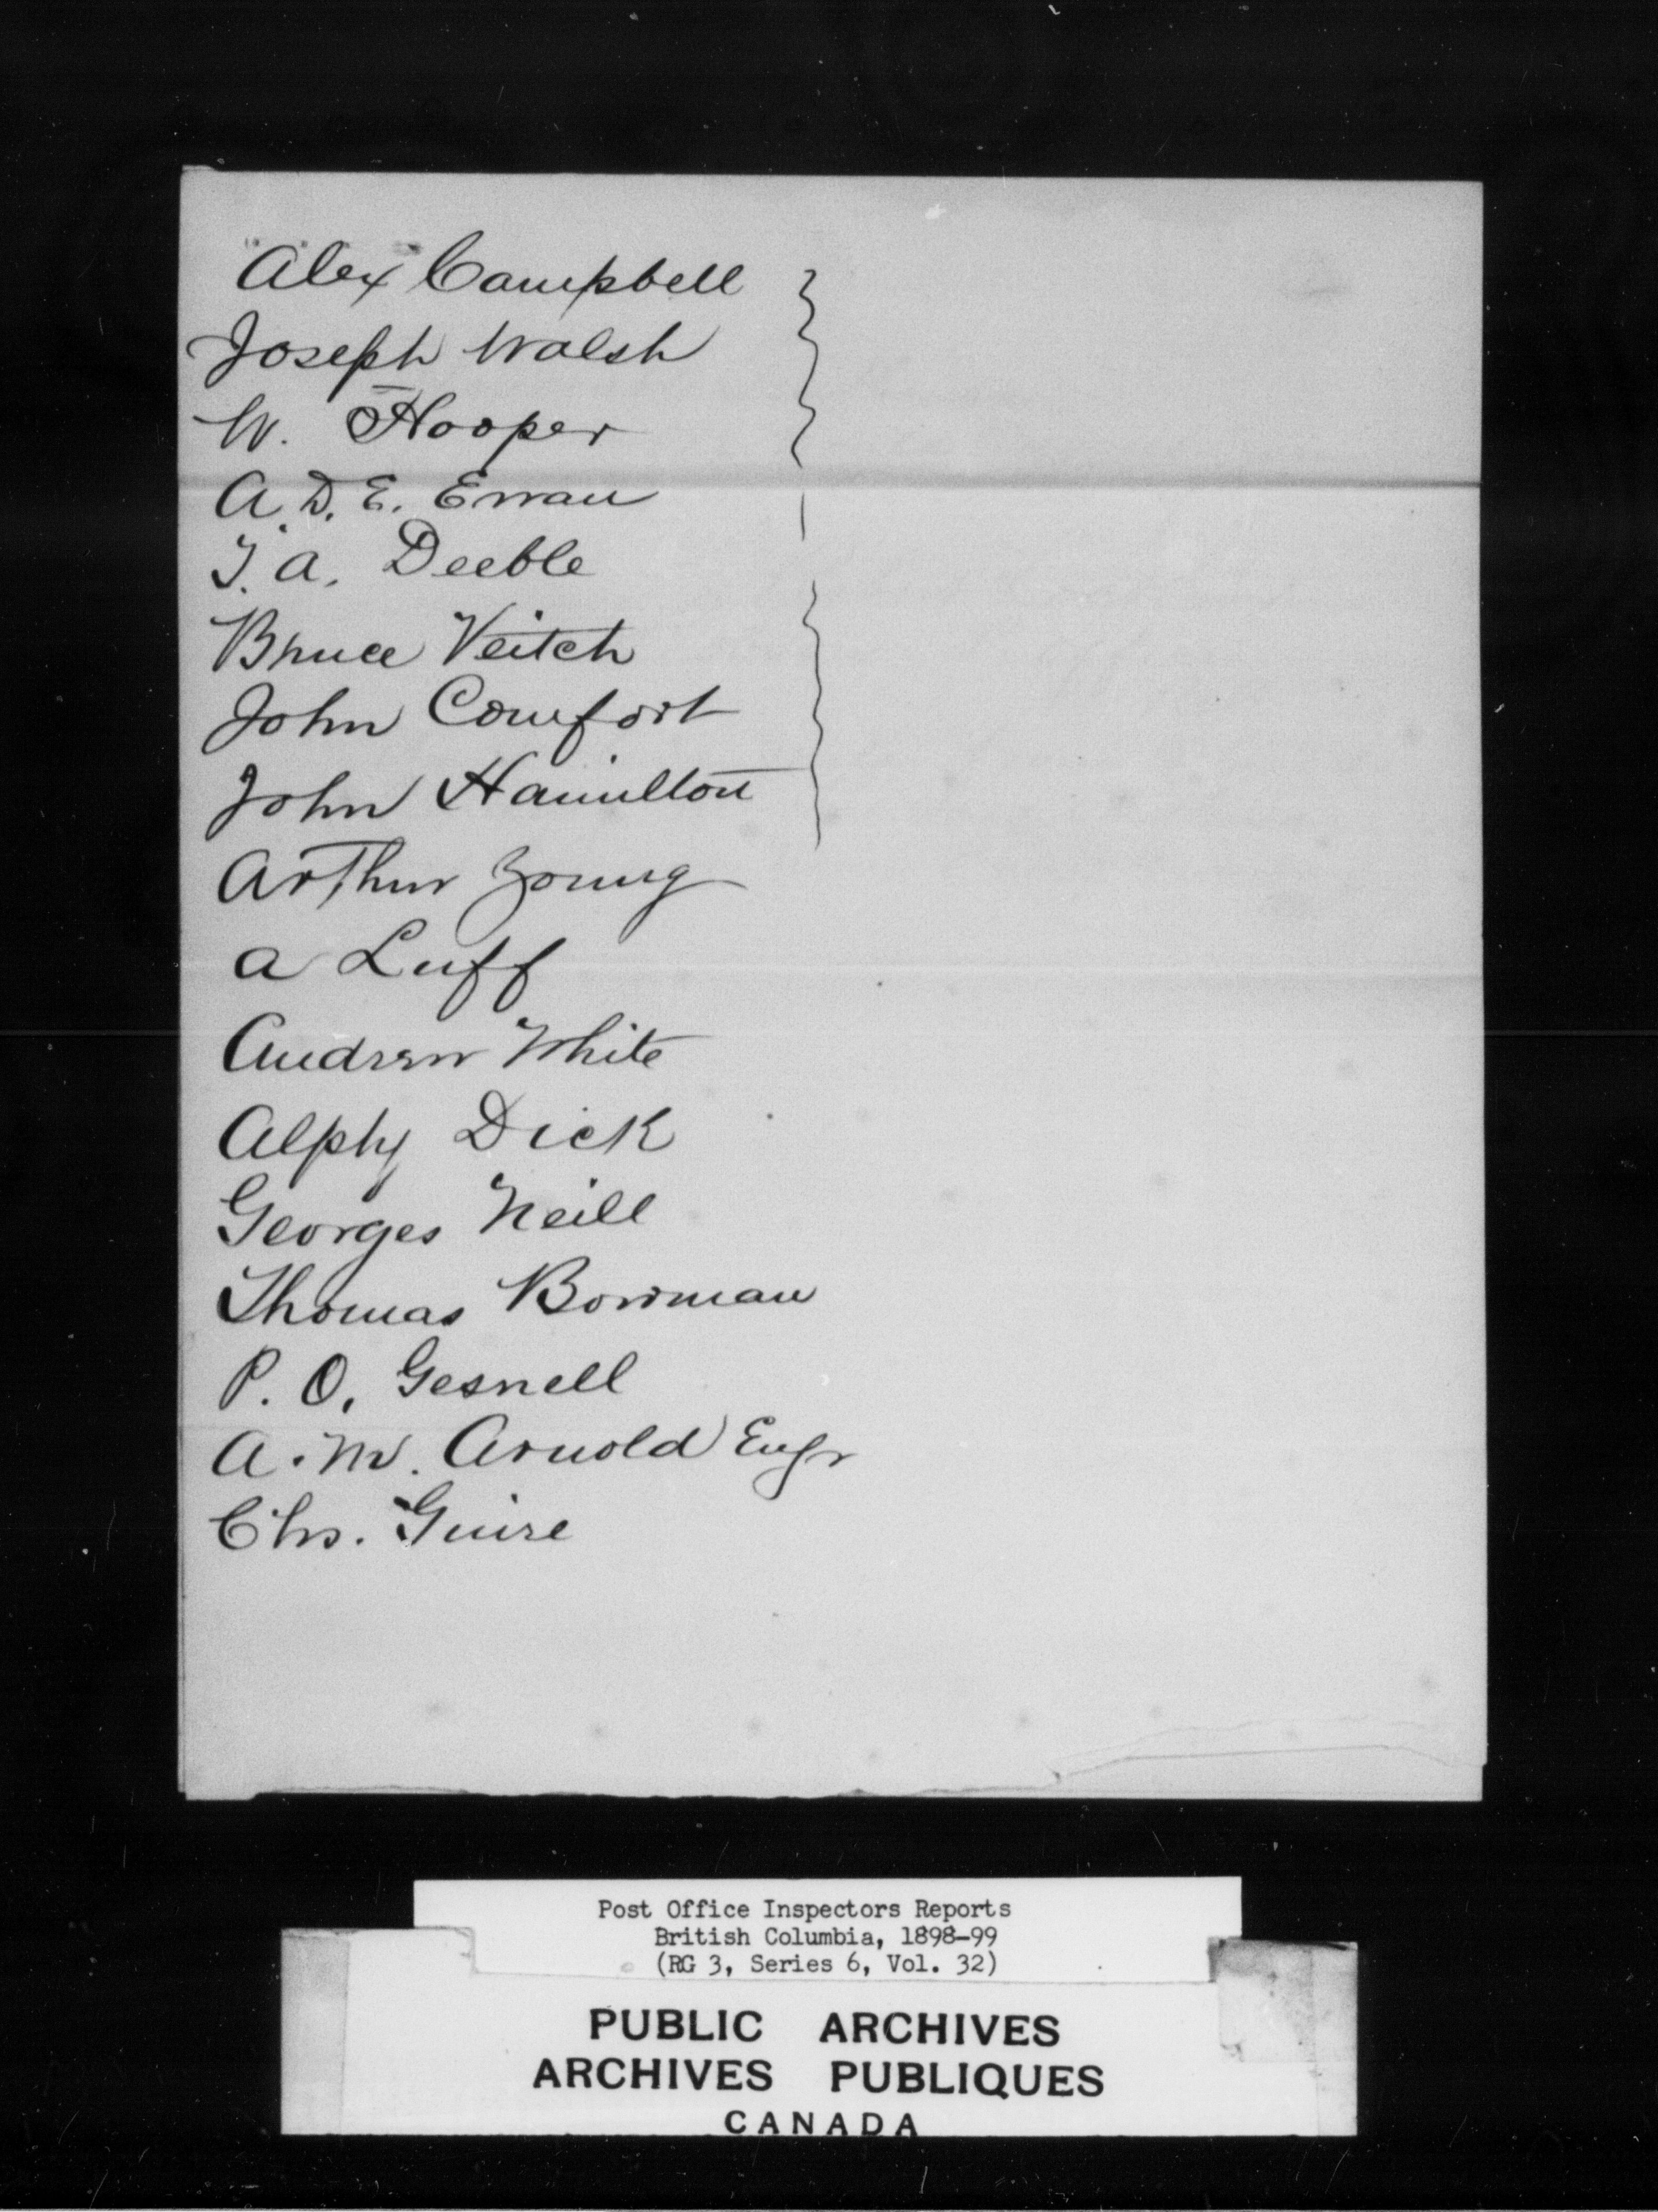 Alex Campbell
Joseph Walsh
W. Hooper
A. D. E. Ewan
T. A. Deeble
Bruce Veitch
John Comfort
John Hamilton
Arthur Young
A Luff
Andrew White
Alphy Dick
Georges Neill
Thomas Bowman
P. O. Gesnell
A. M. Arnold Engr
Chs. Guire
Post Office Inspectors Reports
British Columbia, 1898-99
(RG 3, Series 6, Vol. 32)
PUBLIC ARCHIVES
ARCHIVES PUBLIQUES
CANADA